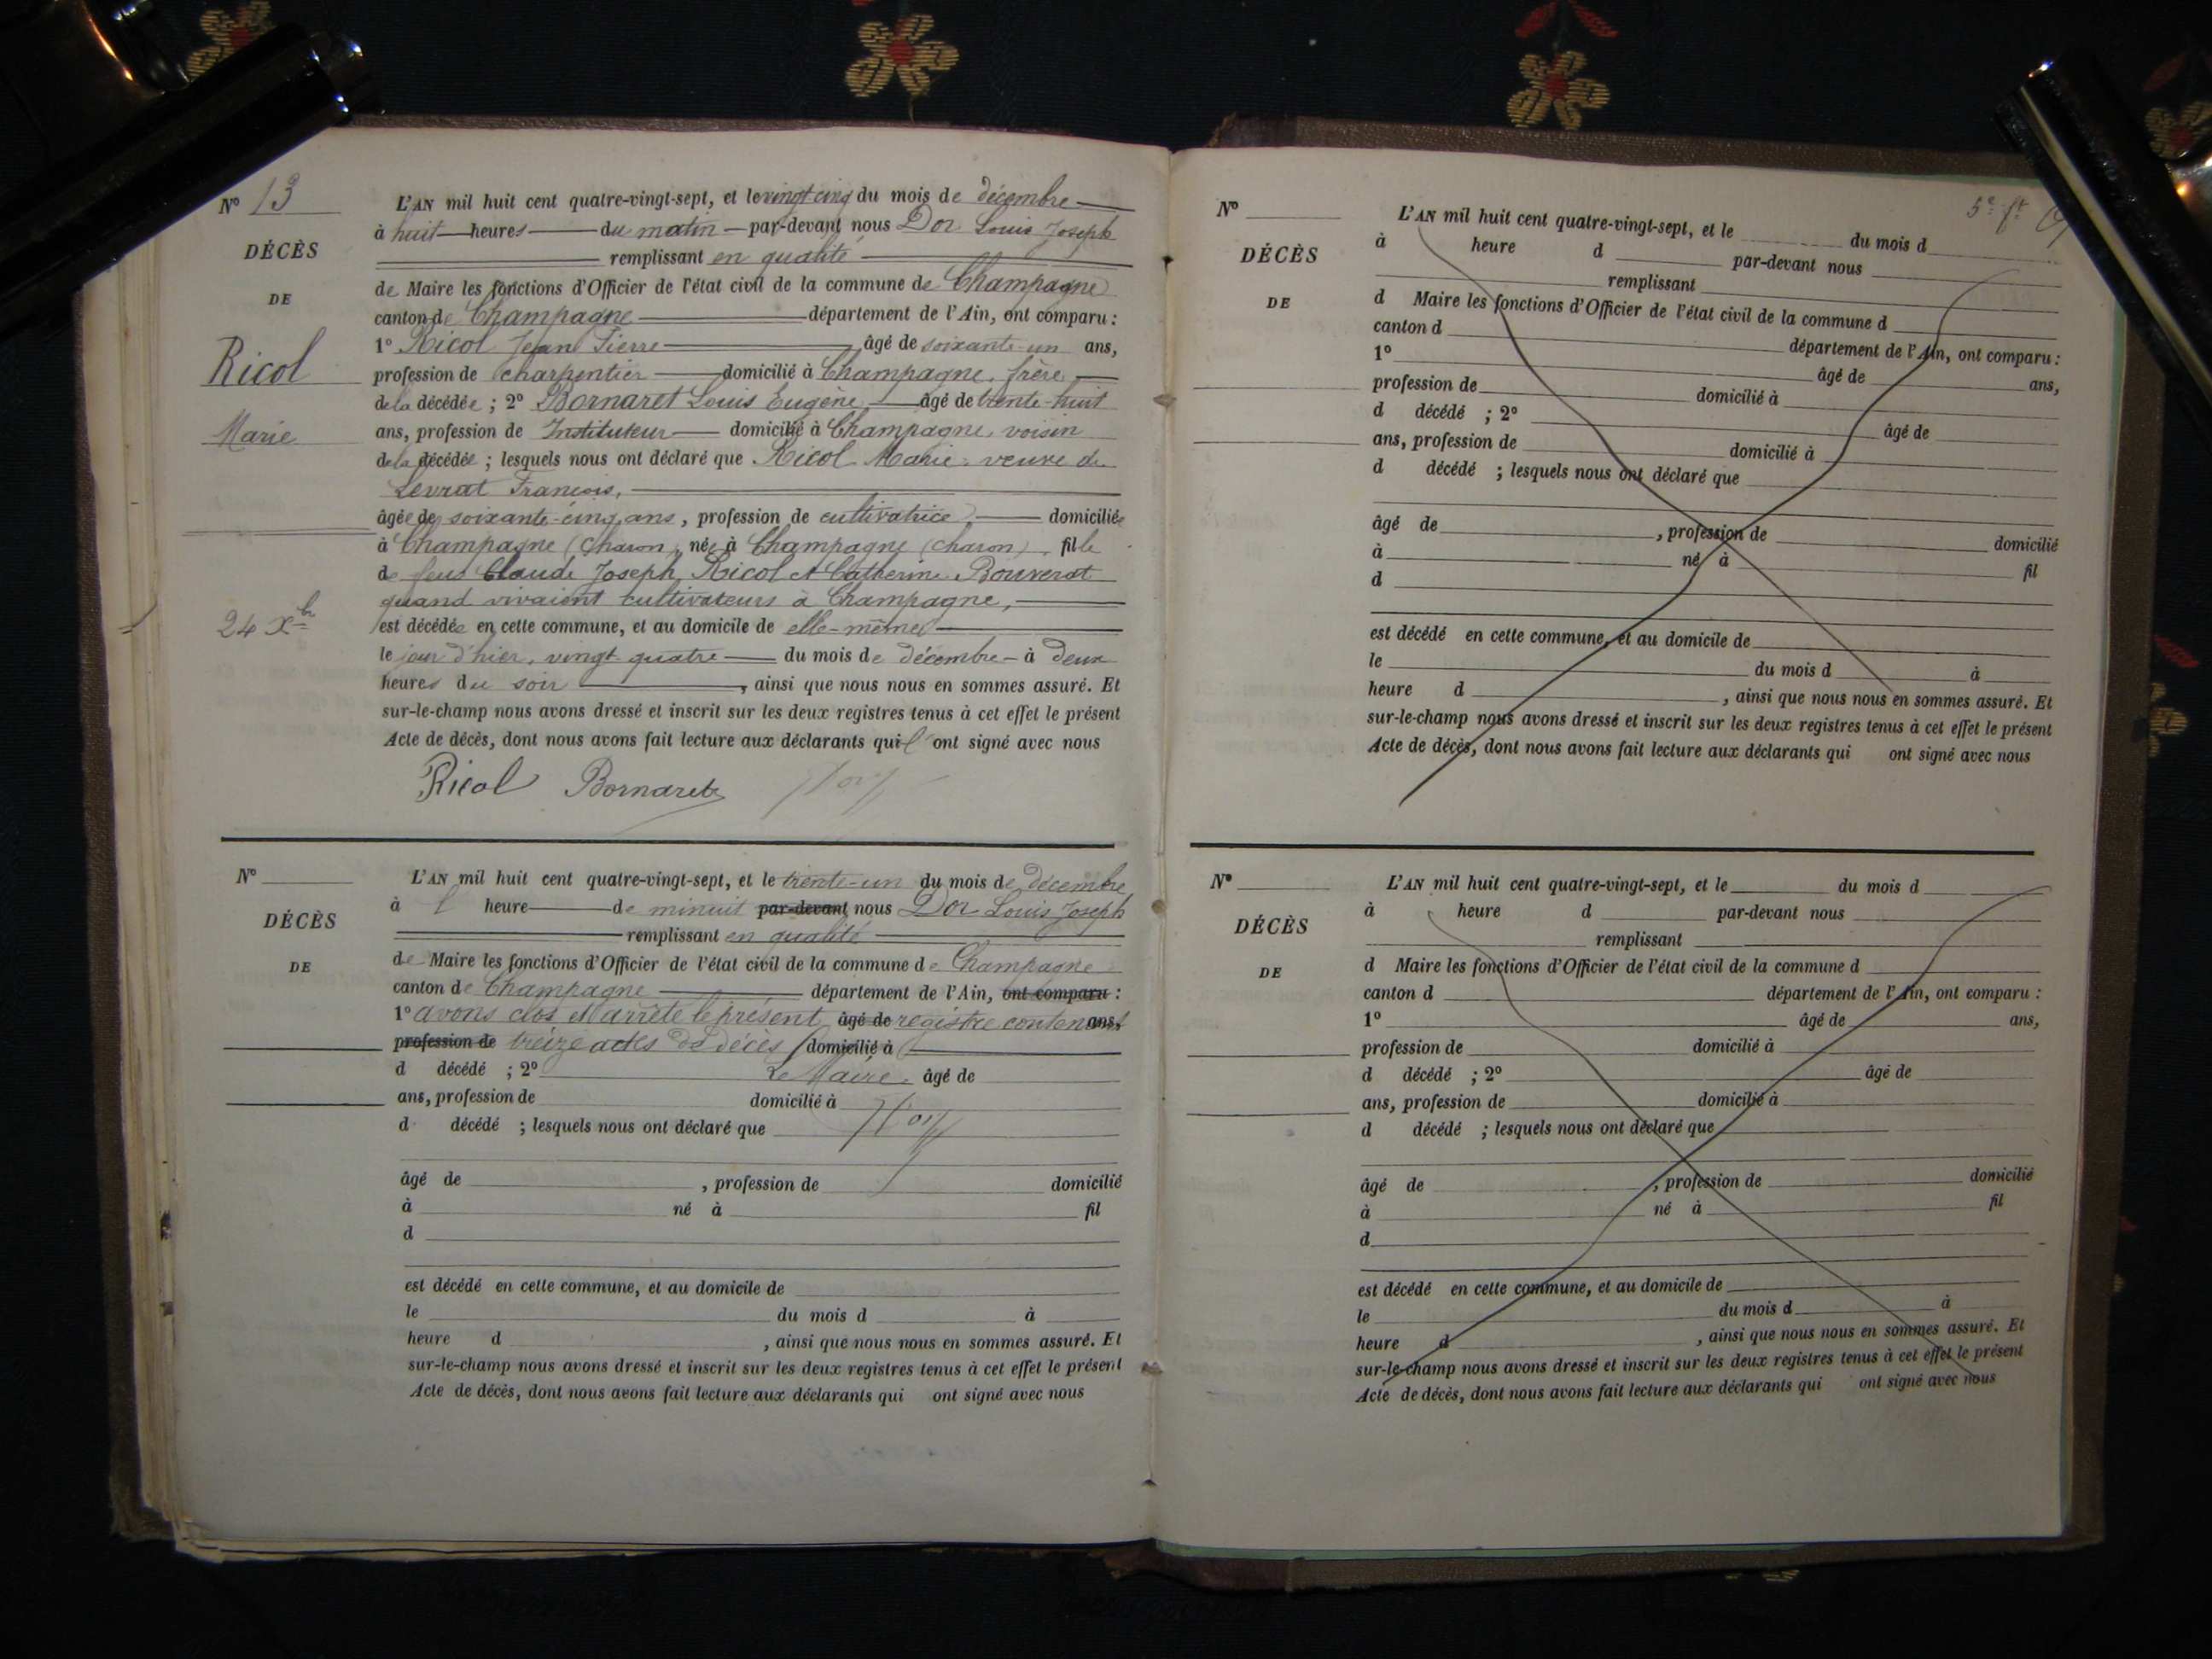 N° 13
DÉCÈS
DE
Ricol
Marie
24 Xbre
L'AN mil huit cent quatre-vingt-sept, et le vingt cinq du mois de décembre
à huit heures du matin par-devant nous Dor Louis Joseph
remplissant en qualité
de Maire les fonctions d'Officier de l'état civil de la commune de Champagne
canton de Champagne département de l'Ain, ont comparu :
1° Ricol Jean Pierre âgé de soixante-un ans,
profession de charpentier domicilié à Champagne, frère
de la décédée ; 2° Bornaret Louis Eugène âgé de trente-huit
ans, profession de Instituteur domicilié à Champagne, voisin
de la décédée ; lesquels nous ont déclaré que Ricol Marie veuve de
Levrat François,
âgée de soixante-cinq ans, profession de cultivatrice domiciliée
à Champagne (Charon) née à Champagne (Charon), fille
de feus Claude Joseph Ricol et Catherine Bouverat
quand vivaient cultivateurs à Champagne,
est décédée en cette commune, et au domicile de elle-même
le jour d'hier, vingt quatre du mois de décembre à deux
heures du soir, ainsi que nous nous en sommes assuré. Et
sur-le-champ nous avons dressé et inscrit sur les deux registres tenus à cet effet le présent
Acte de décès, dont nous avons fait lecture aux déclarants qui l'ont signé avec nous
Ricol Bornaret Dor
N°
DÉCÈS
DE
L'AN mil huit cent quatre-vingt-sept, et le trente-un du mois de décembre
à l heure de minuit par-devant nous Dor Louis Joseph
remplissant en qualité
de Maire les fonctions d'Officier de l'état civil de la commune de Champagne
canton de Champagne département de l'Ain, ont comparu :
1° avons clos et arrêté le présent âgé de registre contenant ans,
profession de treize actes de décès domicilié à
d décédé ; 2° Le Maire. âgé de
ans, profession de domicilié à
d décédé ; lesquels nous ont déclaré que Dor
âgé de , profession de domicilié
à né à fil
d
est décédé en cette commune, et au domicile de
le du mois d à
heure d , ainsi que nous nous en sommes assuré. Et
sur-le-champ nous avons dressé et inscrit sur les deux registres tenus à cet effet le présent
Acte de décès, dont nous avons fait lecture aux déclarants qui ont signé avec nous
5e ft
N°
DÉCÈS
DE
L'AN mil huit cent quatre-vingt-sept, et le du mois d
à heure d par-devant nous
remplissant
d Maire les fonctions d'Officier de l'état civil de la commune d
canton d département de l'Ain, ont comparu :
1° âgé de ans,
profession de domicilié à
d décédé ; 2° âgé de
ans, profession de domicilié à
d décédé ; lesquels nous ont déclaré que
âgé de , profession de domicilié
à né à fil
d
est décédé en cette commune, et au domicile de
le du mois d à
heure d , ainsi que nous nous en sommes assuré. Et
sur-le-champ nous avons dressé et inscrit sur les deux registres tenus à cet effet le présent
Acte de décès, dont nous avons fait lecture aux déclarants qui ont signé avec nous
N°
DÉCÈS
DE
L'AN mil huit cent quatre-vingt-sept, et le du mois d
à heure d par-devant nous
remplissant
d Maire les fonctions d'Officier de l'état civil de la commune d
canton d département de l'Ain, ont comparu :
1° âgé de ans,
profession de domicilié à
d décédé ; 2° âgé de
ans, profession de domicilié à
d décédé ; lesquels nous ont déclaré que
âgé de , profession de domicilié
à né à fil
d
est décédé en cette commune, et au domicile de
le du mois d à
heure d , ainsi que nous nous en sommes assuré. Et
sur-le-champ nous avons dressé et inscrit sur les deux registres tenus à cet effet le présent
Acte de décès, dont nous avons fait lecture aux déclarants qui ont signé avec nous